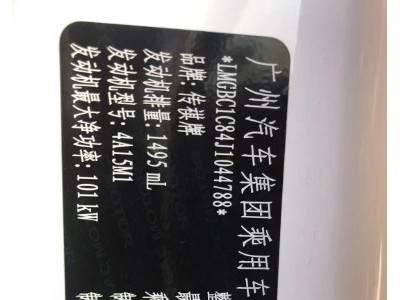 广州汽车集团乘用车
*LMGBC1C84J1044788*
品牌: 传祺牌
发动机排量: 1495 mL
发动机型号: 4A15M1
发动机最大净功率: 101 kW
整
最
乘
制